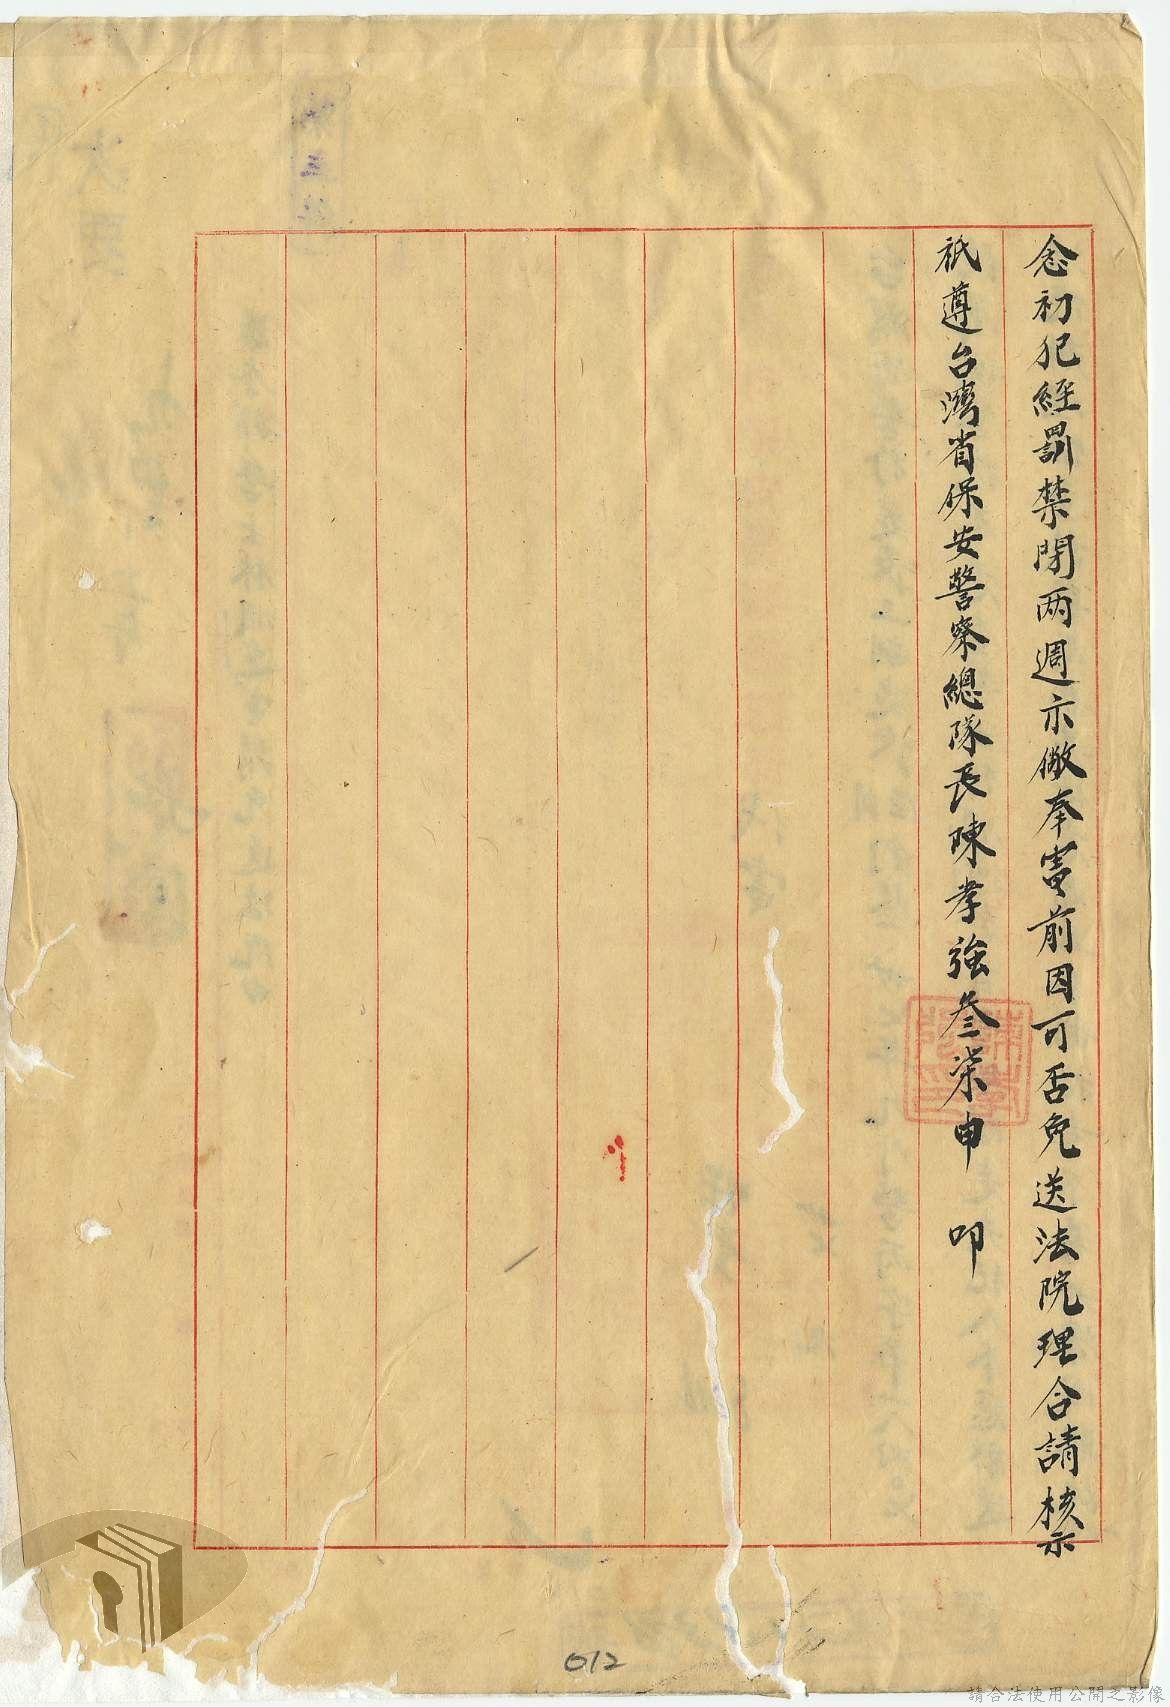 念初犯經罰禁閉两週示儆奉電前因可否免送法院理合請核示
祇遵台灣省保安警察總隊長陳孝強叁柒申 叩
012
請合法使用公開之影像